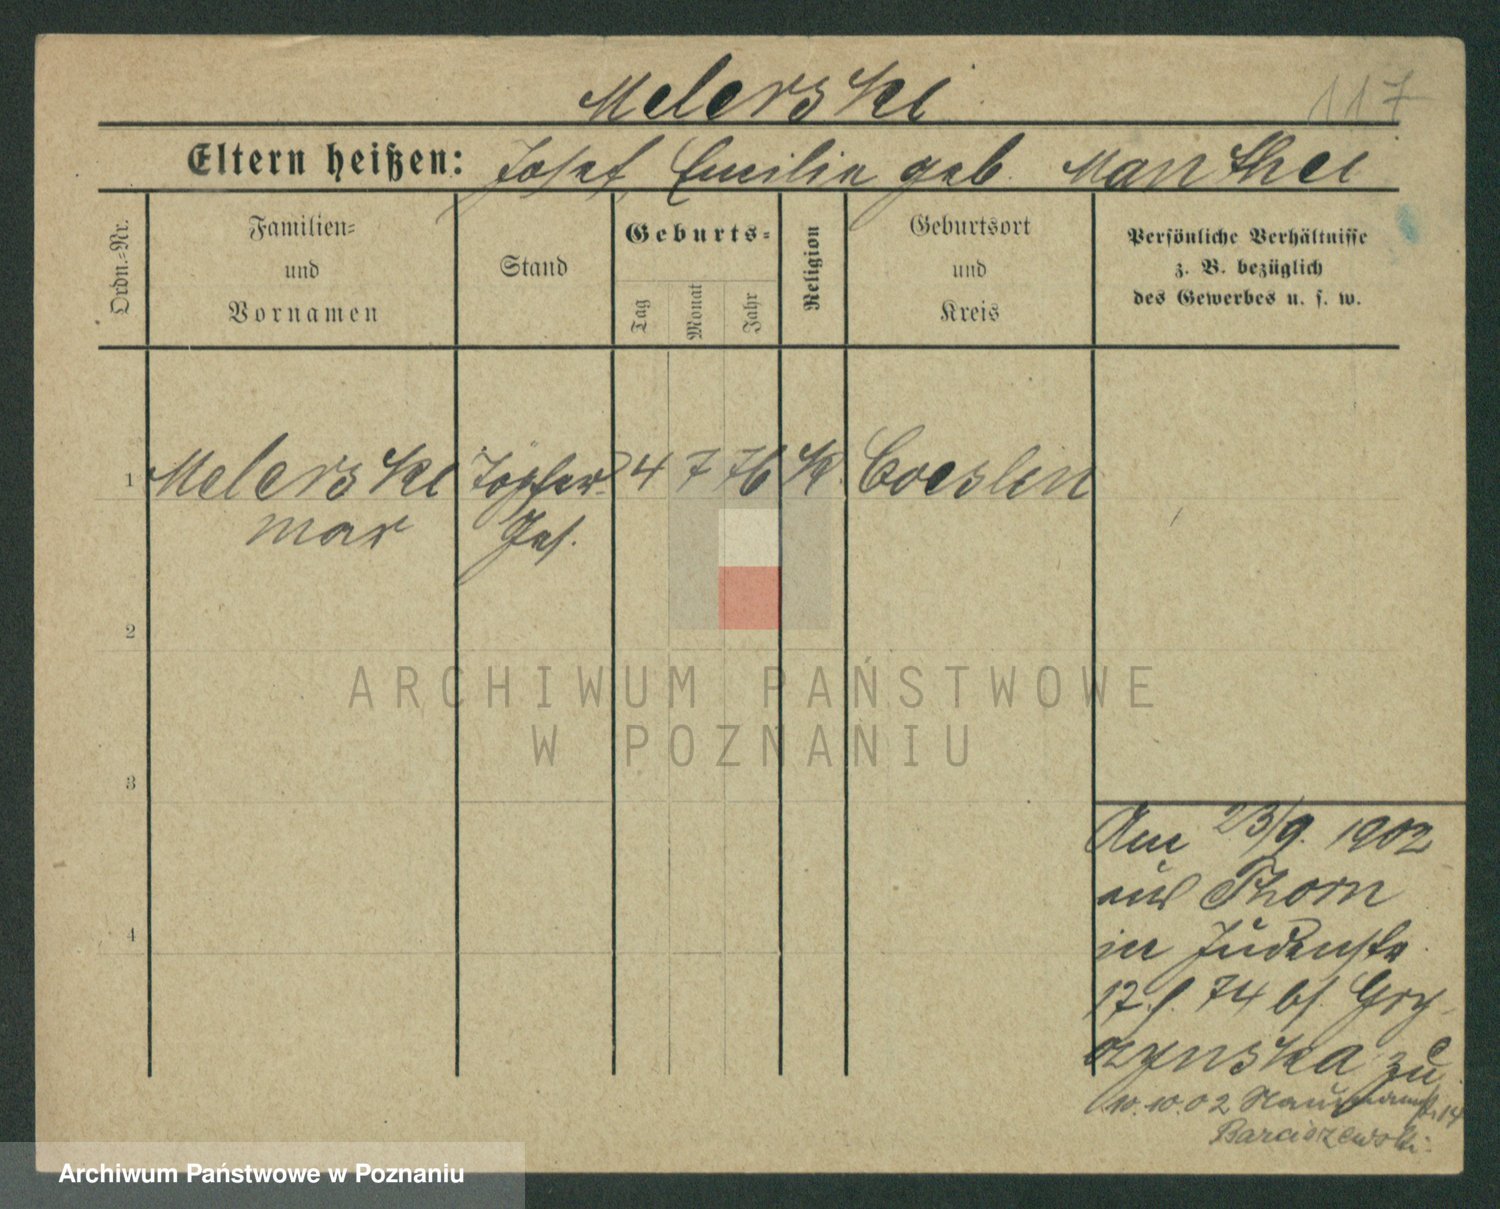 Melerski
117
Eltern heißen: Josef, Emilie geb. Manthei
Ordn.-Nr.
Familien-
und
Vornamen
Stand
Geburts-
Tag
Monat
Jahr
Religion
Geburtsort
und
Kreis
Persönliche Verhältnisse
z. B. bezüglich
des Gewerbes u. s. w.
1 Melerski Töpfer 4 7 76 K. Coeslin
max Ges.
2
3
4
Am 23/9. 1902
aus Thorn
in Judenstr.
17. 74 bf. Gry-
czynska zu
10.10.02 Naumannstr. 14
Barciszewski
ARCHIWUM PAŃSTWOWE
W POZNANIU
Archiwum Państwowe w Poznaniu